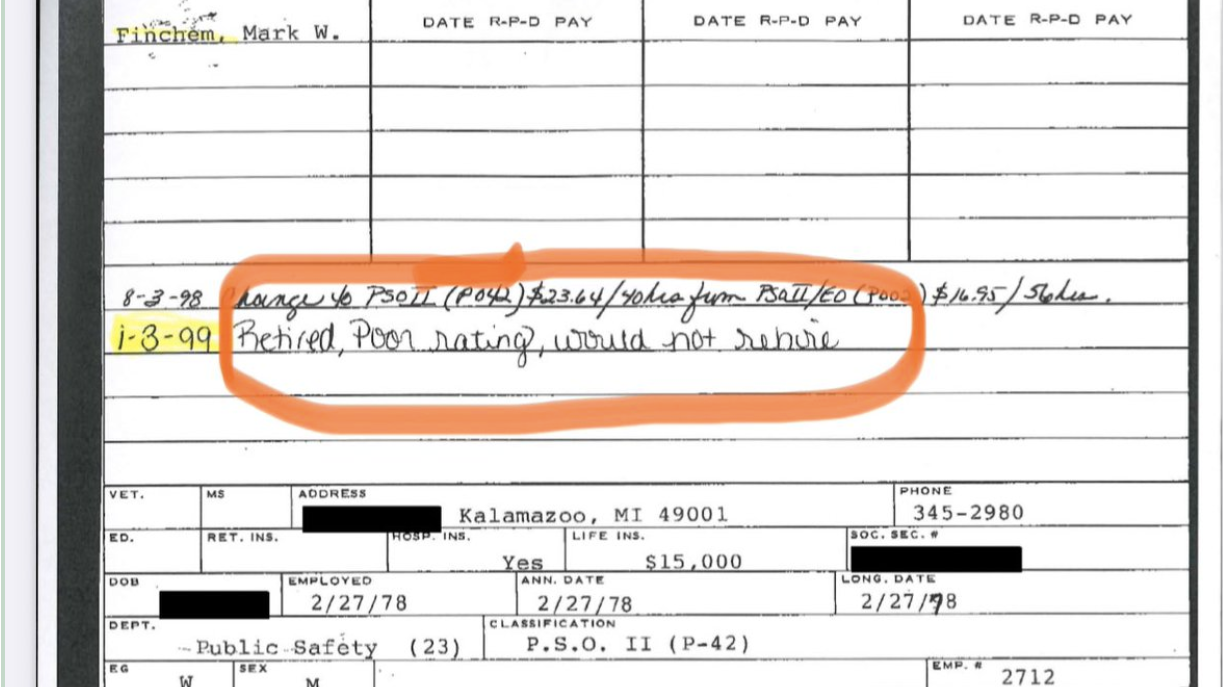 DATE R-P-D PAY DATE R-P-D PAY DATE R-P-D PAY
Finchem, Mark W.
8-3-98 Change to PSOII (P042) $23.64/40hrs from PSOII/EO (P002) $16.95/56hrs.
1-3-99 Retired, Poor rating, would not rehire
VET. MS ADDRESS PHONE
Kalamazoo, MI 49001 345-2980
ED. RET. INS. HOSP. INS. LIFE INS. SOC. SEC. #
Yes $15,000
DOB EMPLOYED ANN. DATE LONG. DATE
2/27/78 2/27/78 2/27/78
DEPT. CLASSIFICATION
Public Safety (23) P.S.O. II (P-42)
EG SEX EMP. #
W M 2712